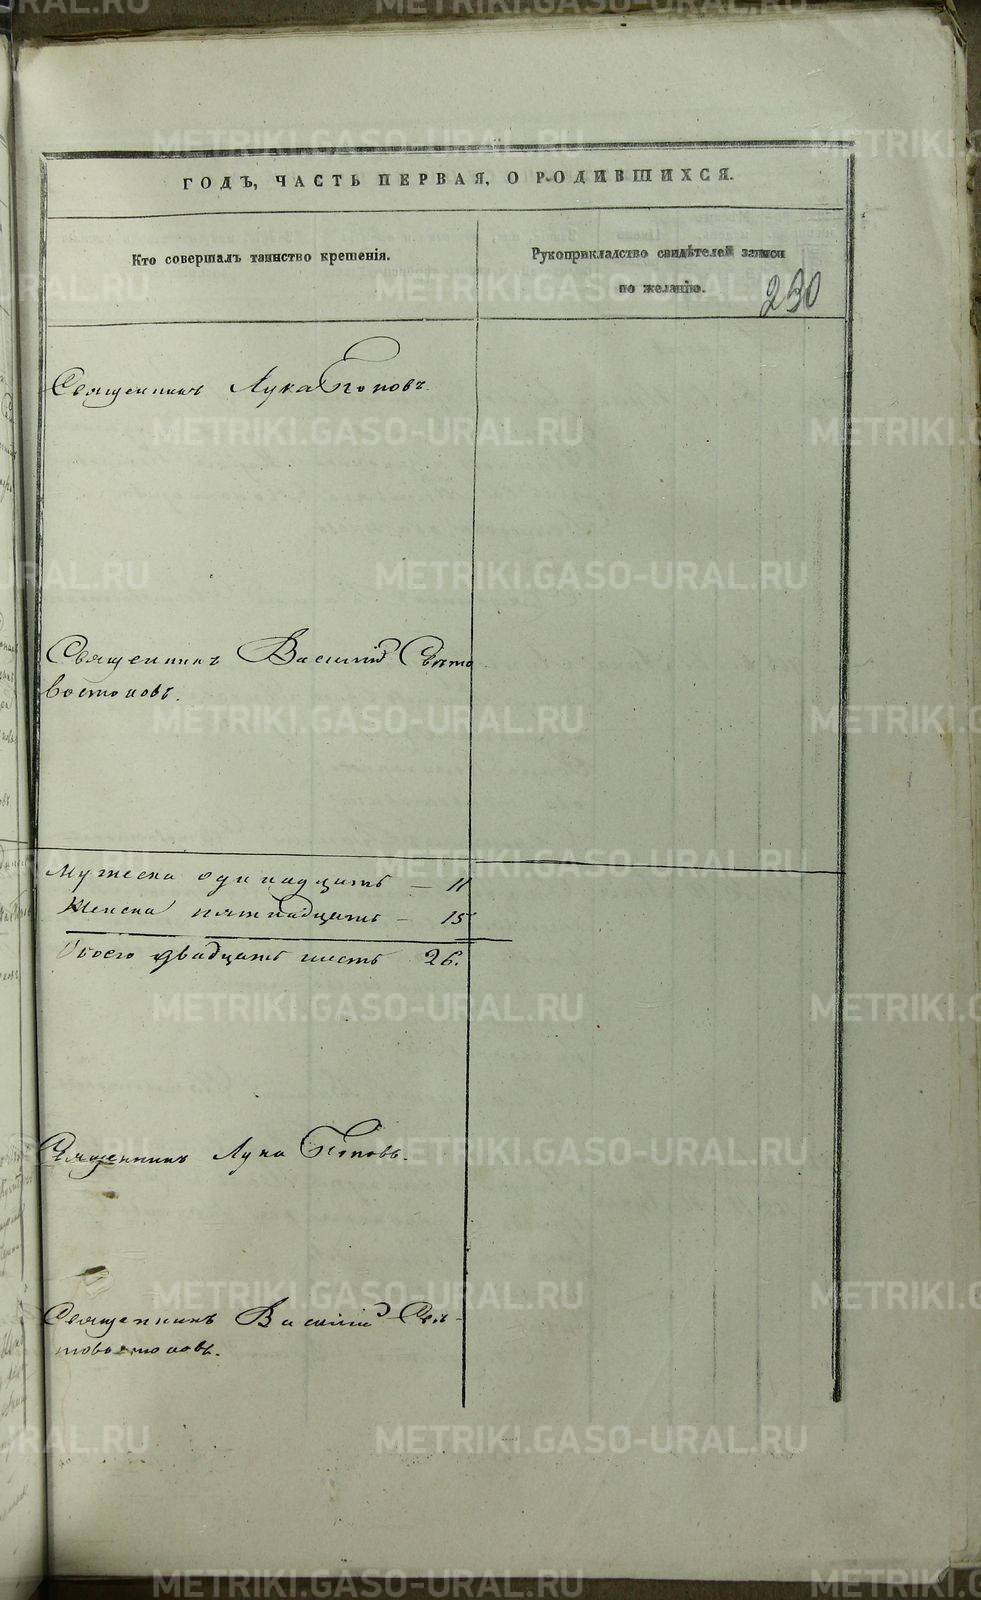 ГОДЪ, ЧАСТЬ ПЕРВАЯ, О РОДИВШИХСЯ.
Кто совершалъ таинство крещенія.
Рукоприкладство свидѣтелей записи
по желанію.
230
Священникъ Лука Поповъ.
Священникъ Василій Свѣто
востоковъ.
Мужеска одинадцать — 11
Женска пятнадцать — 15
Обоего двадцать шесть 26.
Священникъ Лука Поповъ.
Священникъ Василій Свѣ-
товостоковъ.
METRIKI.GASO-URAL.RU